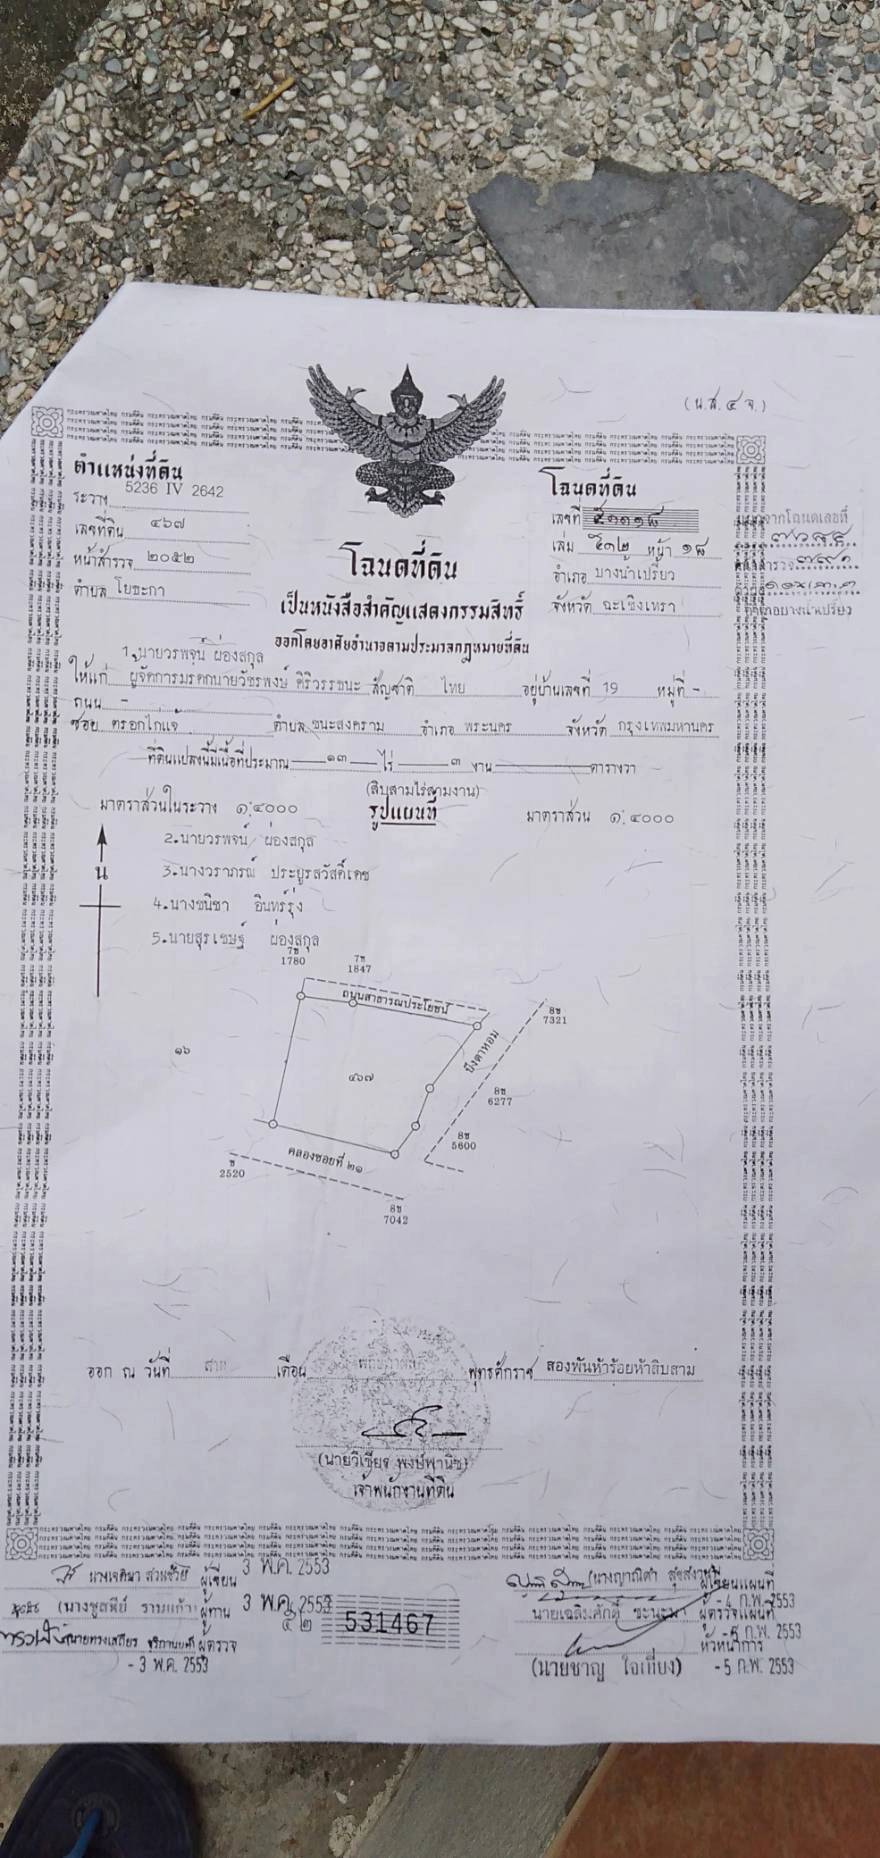 (น.ส.๔ จ.)
ตำแหน่งที่ดิน
ระวาง 5236 IV 2642
เลขที่ดิน ๔๖๗
หน้าสำรวจ ๒๐๕๒
ตำบล โยธะกา
โฉนดที่ดิน
เลขที่ ๕๑๑๑๘
เล่ม ๕๑๒ หน้า ๑๘
อำเภอ บางน้ำเปรี้ยว
จังหวัด ฉะเชิงเทรา
จากโฉนดเลขที่
อำเภอบางน้ำเปรี้ยว
โฉนดที่ดิน
เป็นหนังสือสำคัญแสดงกรรมสิทธิ์
ออกโดยอาศัยอำนาจตามประมวลกฎหมายที่ดิน
1.นายวรพจน์ ผ่องสกุล
ให้แก่ ผู้จัดการมรดกนายวัชรพงษ์ ศิริวรรชนะ สัญชาติ ไทย อยู่บ้านเลขที่ 19 หมู่ที่ -
ถนน -
ซอย ตรอกไก่แจ้ ตำบล ชนะสงคราม อำเภอ พระนคร จังหวัด กรุงเทพมหานคร
ที่ดินแปลงนี้มีเนื้อที่ประมาณ ๑๓ ไร่ ๓ งาน ตารางวา
(สิบสามไร่สามงาน)
มาตราส่วนในระวาง ๑:๔๐๐๐ รูปแผนที่ มาตราส่วน ๑:๔๐๐๐
2.นายวรพจน์ ผ่องสกุล
น
3.นางวราภรณ์ ประยูรสวัสดิ์เดช
4.นางชนิชา อินทร์รุ่ง
5.นายสุรเชษฐ์ ผ่องสกุล
7ซ 1780
7ซ 1847
ถนนสาธารณประโยชน์
8ซ 7321
บึงตาหอม
๑๖
๔๖๗
8ซ 6277
8ซ 5600
คลองซอยที่ ๒๑
ซ 2520
8ซ 7042
ออก ณ วันที่ สาม เดือน พฤษภาคม พุทธศักราช สองพันห้าร้อยห้าสิบสาม
(นายวิเชียร พงษ์พานิช)
เจ้าพนักงานที่ดิน
ผู้เขียน 3 พ.ค. 2553
ผู้ทาน 3 พ.ค. 2553
ผู้ตรวจ
- 3 พ.ค. 2553
๕ ๒ 531467
ผู้เขียนแผนที่
- 4 ก.พ. 2553
ผู้ตรวจแผนที่
ก.พ. 2553
หัวหน้าการ
(นายชาญ ใจเที่ยง) - 5 ก.พ. 2553